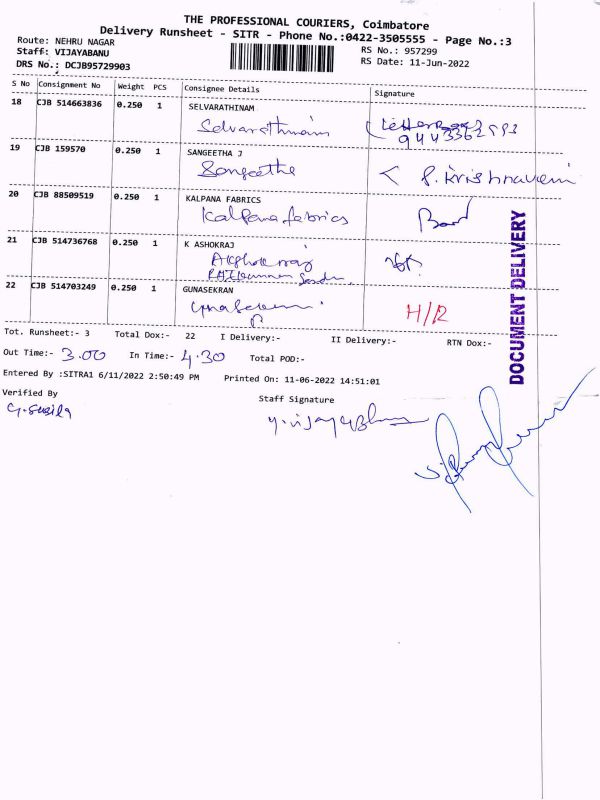 THE PROFESSIONAL COURIERS, Coimbatore
Delivery Runsheet - SITR - Phone No.:0422-3505555 - Page No.:3
Route: NEHRU NAGAR
RS No.: 957299
Staff: VIJAYABANU
RS Date: 11-Jun-2022
DRS No.: DCJB95729903
S No Consignment No Weight PCS Consignee Details Signature
18 CJB 514663836 0.250 1 SELVARATHINAM
Selvarathinam
19 CJB 159570 0.250 1 SANGEETHA J
Sangeetha < P. Krishnaveni
20 CJB 88509519 0.250 1 KALPANA FABRICS
Kalpana fabrics
21 CJB 514736768 0.250 1 K ASHOKRAJ
22 CJB 514703249 0.250 1 GUNASEKRAN
H/R
DOCUMENT DELIVERY
Tot. Runsheet:- 3 Total Dox:- 22 I Delivery:- II Delivery:- RTN Dox:-
Out Time:- 3.00 In Time:- 4.30 Total POD:-
Entered By :SITRA1 6/11/2022 2:50:49 PM Printed On: 11-06-2022 14:51:01
Verified By
Staff Signature
G. Susila